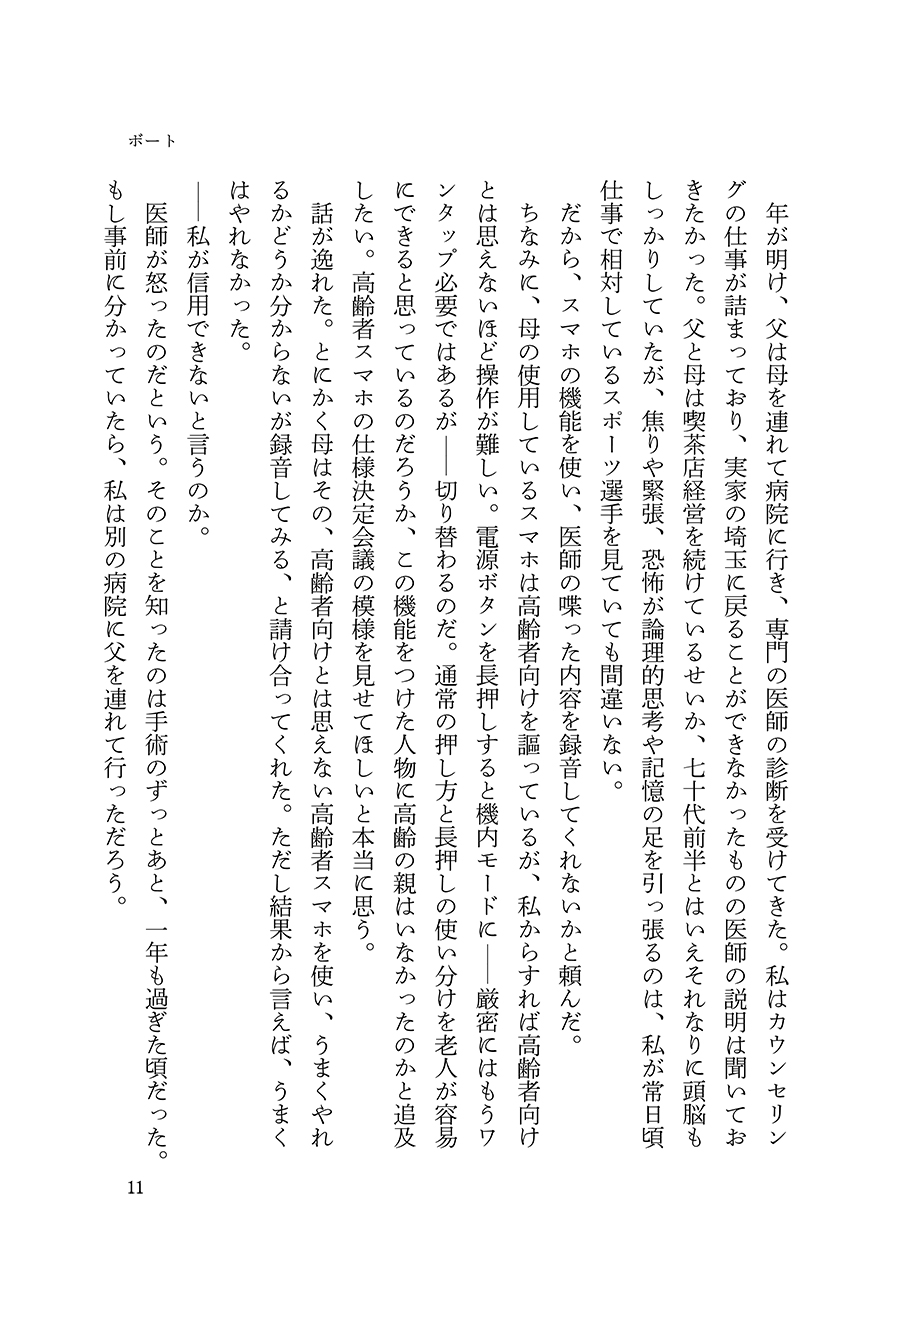 ボート
年が明け、父は母を連れて病院に行き、専門の医師の診断を受けてきた。私はカウンセリン
グの仕事が詰まっており、実家の埼玉に戻ることができなかったものの医師の説明は聞いてお
きたかった。父と母は喫茶店経営を続けているせいか、七十代前半とはいえそれなりに頭脳も
しっかりしていたが、焦りや緊張、恐怖が論理的思考や記憶の足を引っ張るのは、私が常日頃
仕事で相対しているスポーツ選手を見ていても間違いない。
だから、スマホの機能を使い、医師の喋った内容を録音してくれないかと頼んだ。
ちなみに、母の使用しているスマホは高齢者向けを謳っているが、私からすれば高齢者向け
とは思えないほど操作が難しい。電源ボタンを長押しすると機内モードに――厳密にはもうワ
ンタップ必要ではあるが――切り替わるのだ。通常の押し方と長押しの使い分けを老人が容易
にできると思っているのだろうか、この機能をつけた人物に高齢の親はいなかったのかと追及
したい。高齢者スマホの仕様決定会議の模様を見せてほしいと本当に思う。
話が逸れた。とにかく母はその、高齢者向けとは思えない高齢者スマホを使い、うまくやれ
るかどうか分からないが録音してみる、と請け合ってくれた。ただし結果から言えば、うまく
はやれなかった。
――私が信用できないと言うのか。
医師が怒ったのだという。そのことを知ったのは手術のずっとあと、一年も過ぎた頃だった。
もし事前に分かっていたら、私は別の病院に父を連れて行っただろう。
11